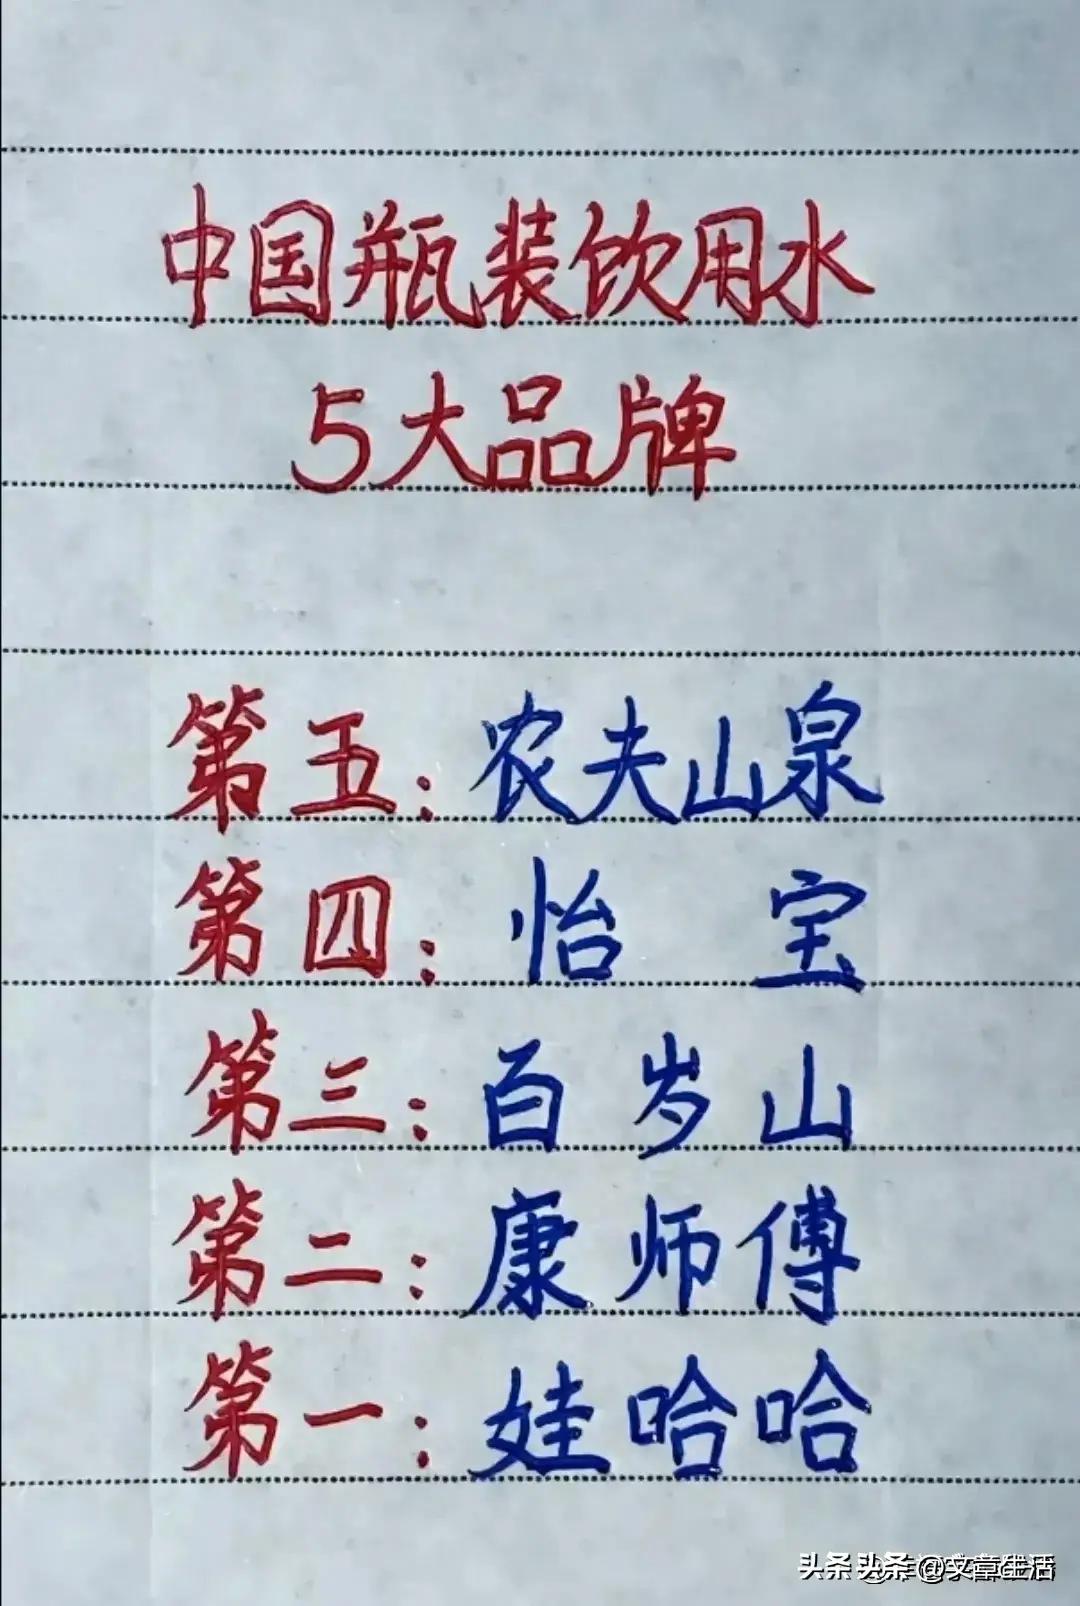 中国瓶装饮用水
5大品牌
第五:农夫山泉
第四:怡宝
第三:百岁山
第二:康师傅
第一:娃哈哈
头条 @文章生活